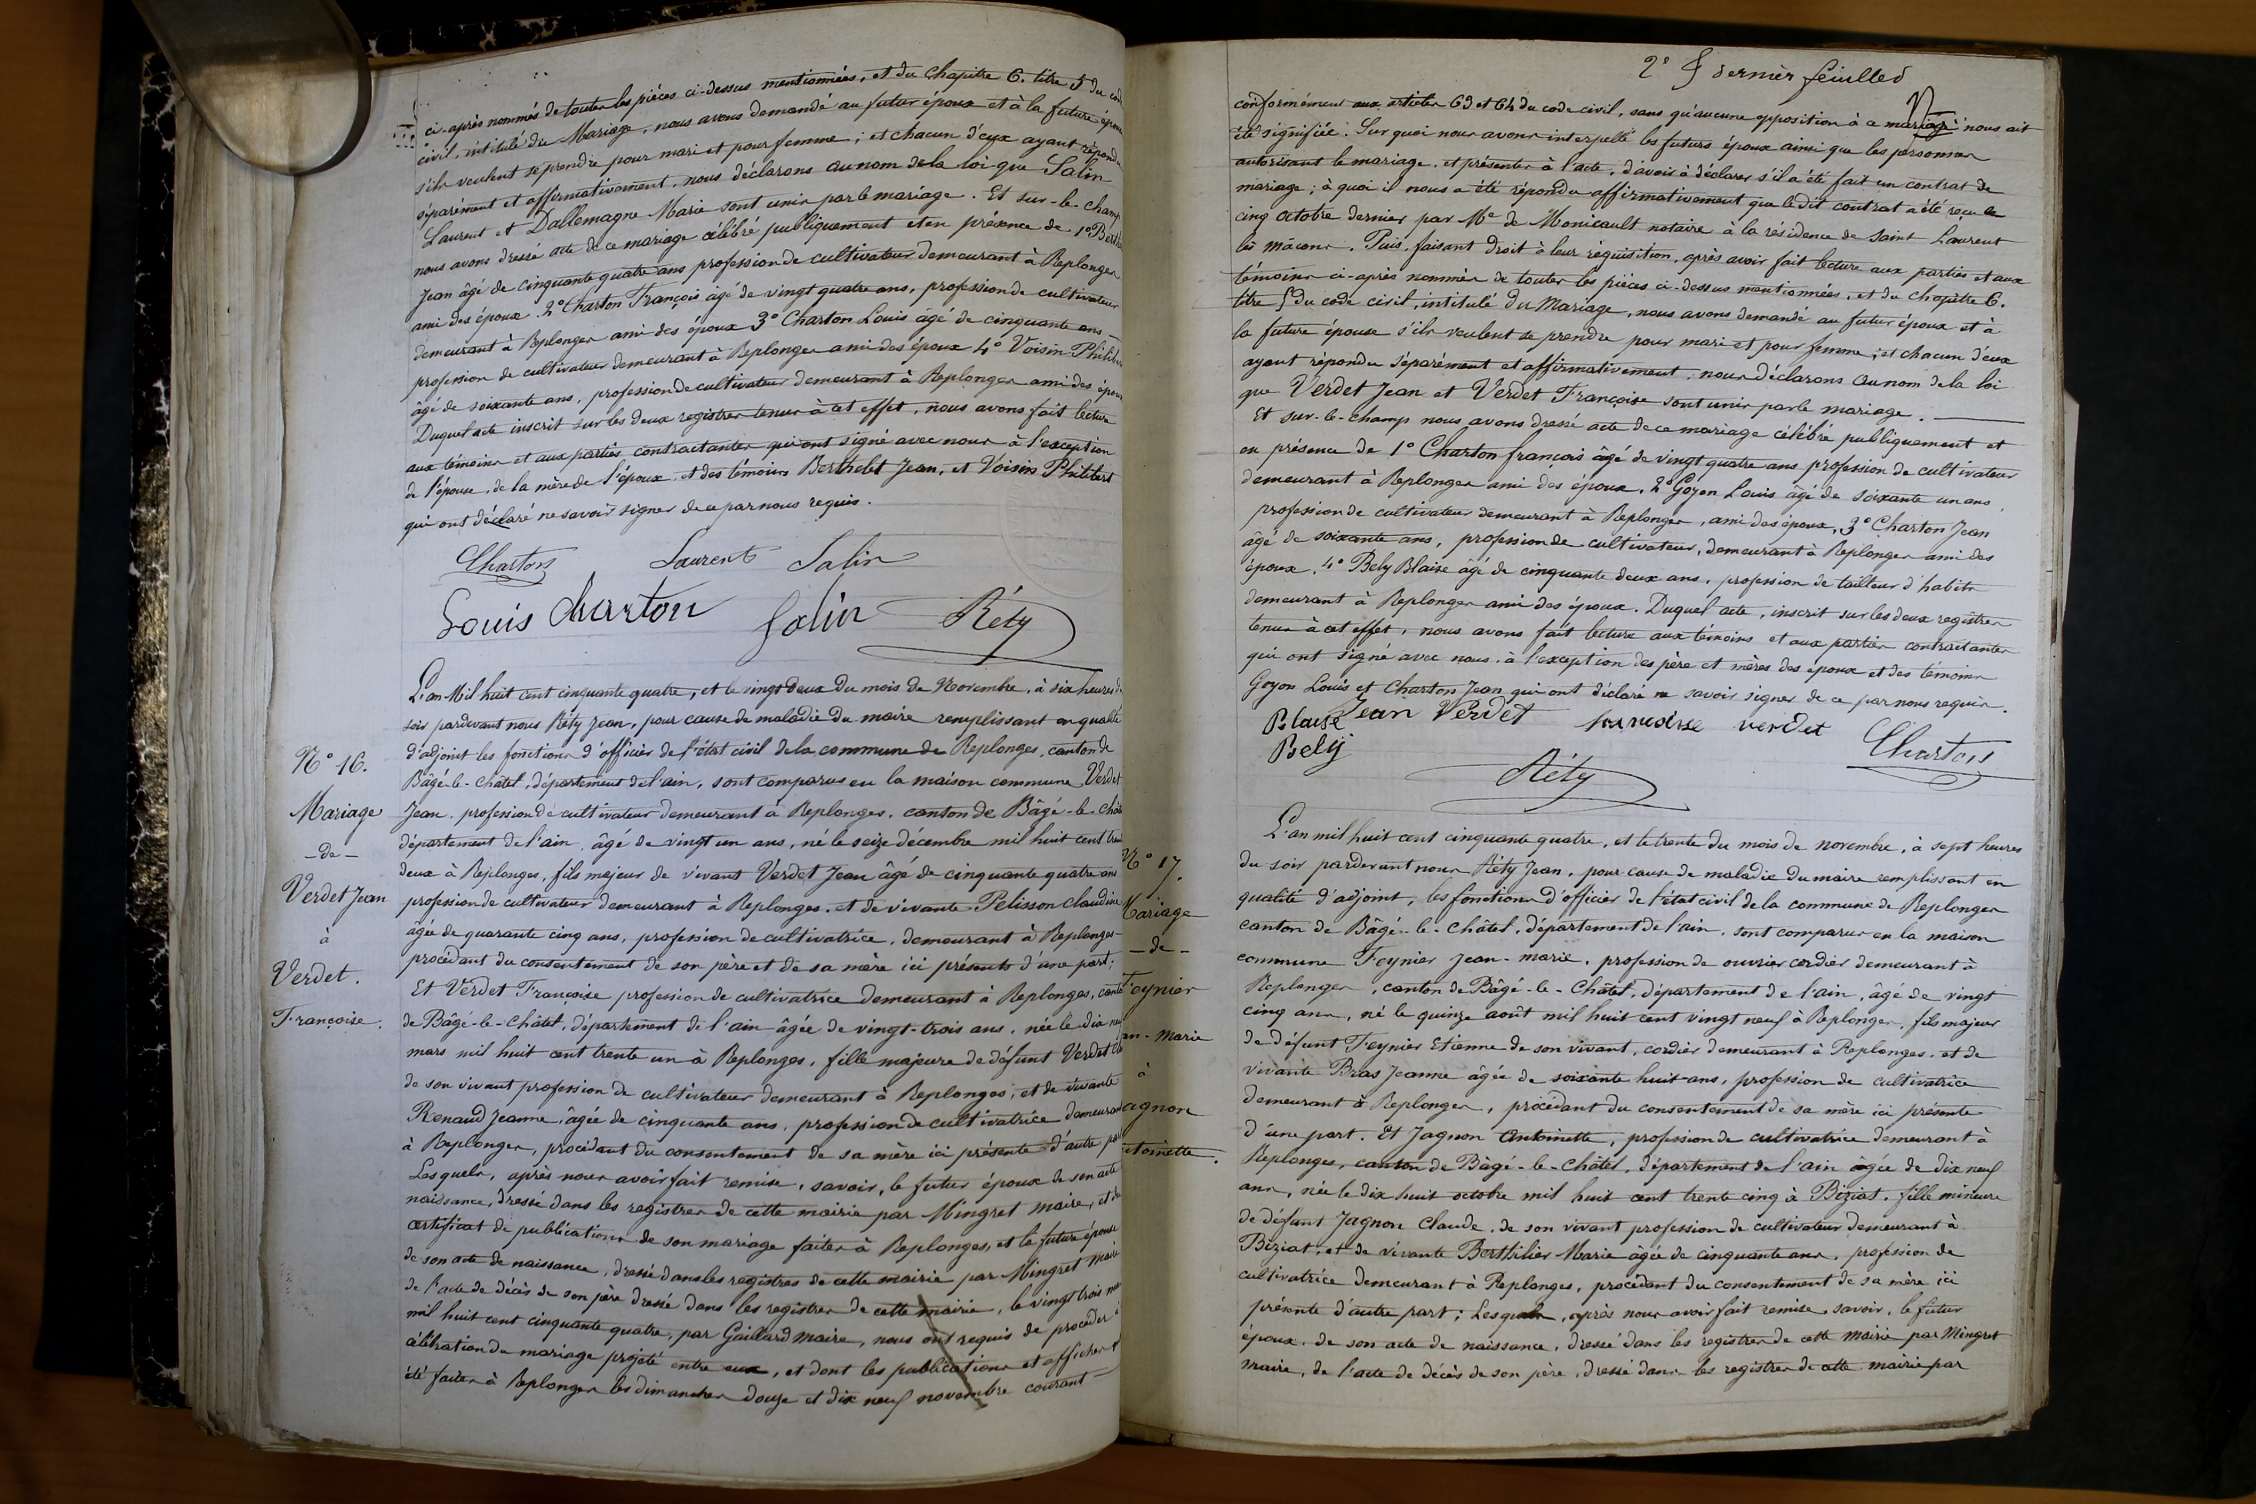 ci-après nommés de toutes les pièces ci-dessus mentionnées, et du chapitre 6. titre 5 du code
civil, intitulé du Mariage, nous avons demandé au futur époux et à la future épouse
s'ils veulent se prendre pour mari et pour femme ; et chacun d'eux ayant répondu
séparément et affirmativement, nous déclarons au nom de la loi que Salin
Laurent et Dallemagne Marie sont unis par le mariage. Et sur-le-champ
nous avons dressé acte de ce mariage célébré publiquement et en présence de 1° Berthelet
Jean âgé de cinquante quatre ans profession de cultivateur demeurant à Replonges
ami des époux 2° Charton François âgé de vingt quatre ans, profession de cultivateur
demeurant à Replonges ami des époux 3° Charton Louis âgé de cinquante ans
profession de cultivateur demeurant à Replonges ami des époux 4° Voisin Philibert
âgé de soixante ans, profession de cultivateur demeurant à Replonges ami des époux
Duquel acte inscrit sur les deux registres tenus à cet effet, nous avons fait lecture
aux témoins et aux parties contractantes qui ont signé avec nous à l'exception
de l'épouse, de la mère de l'époux, et des témoins Berthelet Jean, et Voisin Philibert
qui ont déclaré ne savoir signer de ce par nous requis.
Charton Laurent Salin
Louis Charton Salin Réty
N° 16.
Mariage
-de-
Verdet Jean
à
Verdet.
Françoise.
L'an Mil huit cent cinquante quatre, et le vingt deux du mois de Novembre, à six heures du
soir pardevant nous Réty Jean, pour cause de maladie du maire remplissant en qualité
d'adjoint les fonctions d'officier de l'état civil de la commune de Replonges, canton de
Bâgé-le-Châtel, département de l'ain, sont comparus en la maison commune Verdet
Jean, profession de cultivateur demeurant à Replonges, canton de Bâgé-le-Châtel
département de l'ain, âgé de vingt un ans, né le seize décembre mil huit cent trente
deux à Replonges, fils majeur de vivant Verdet Jean âgé de cinquante quatre ans
profession de cultivateur demeurant à Replonges, et de vivante Pelisson Claudine
âgée de quarante cinq ans, profession de cultivatrice, demeurant à Replonges
procédant du consentement de son père et de sa mère ici présents d'une part ;
Et Verdet Françoise profession de cultivatrice demeurant à Replonges, canton
de Bâgé-le-Châtel, département de l'ain âgée de vingt-trois ans, née le dix neuf
mars mil huit cent trente un à Replonges, fille majeure de défunt Verdet
de son vivant profession de cultivateur demeurant à Replonges, et de vivante
Renaud Jeanne, âgée de cinquante ans, profession de cultivatrice demeurant
à Replonges, procédant du consentement de sa mère ici présente d'autre part
Lesquels, après nous avoir fait remise, savoir, le futur époux de son acte
naissance, dressé dans les registres de cette mairie par Mingret maire, et du
certificat de publications de son mariage faites à Replonges, et la future épouse
de son acte de naissance, dressé dans les registres de cette mairie par Mingret maire
de l'acte de décès de son père dressé dans les registres de cette mairie, le vingt trois
mil huit cent cinquante quatre, par Gaillard maire, nous ont requis de procéder à
célébration du mariage projeté entre eux, et dont les publications et affiches
été faites à Replonges les dimanches douze et dix neuf novembre courant
2e & dernier feuillet
conformément aux articles 63 et 64 du code civil, sans qu'aucune opposition à ce mariage nous ait
été signifiée. Sur quoi nous avons interpellé les futurs époux ainsi que les personnes
autorisant le mariage, et présentes à l'acte, d'avoir à déclarer s'il a été fait un contrat de
mariage ; à quoi il nous a été répondu affirmativement que le dit contrat a été reçu le
cinq octobre dernier par Me de Monicault notaire à la résidence de Saint Laurent
lès mâcons. Puis, faisant droit à leur réquisition, après avoir fait lecture aux parties et aux
témoins ci-après nommés de toutes les pièces ci-dessus mentionnées, et du chapitre 6.
titre 5 du code civil, intitulé du Mariage, nous avons demandé au futur époux et à
la future épouse s'ils veulent se prendre pour mari et pour femme ; et chacun d'eux
ayant répondu séparément et affirmativement, nous déclarons au nom de la loi
que Verdet Jean et Verdet Françoise sont unis par le mariage.
Et sur-le-champ nous avons dressé acte de ce mariage célébré publiquement et
en présence de 1° Charton françois âgé de vingt quatre ans profession de cultivateur
demeurant à Replonges ami des époux, 2° Goyon Louis âgé de soixante un ans,
profession de cultivateur demeurant à Replonges, ami des époux, 3° Charton Jean
âgé de soixante ans, profession de cultivateur, demeurant à Replonges ami des
époux, 4° Bely Blaise âgé de cinquante deux ans, profession de tailleur d'habits
demeurant à Replonges ami des époux. Duquel acte, inscrit sur les deux registres
tenus à cet effet, nous avons fait lecture aux témoins et aux parties contractantes
qui ont signé avec nous, à l'exception des père et mères des époux et des témoins
Goyon Louis et Charton Jean qui ont déclaré ne savoir signer de ce par nous requis.
Blaise Jean Verdet francoise verdet
Bely Charton
Réty
N° 17.
Mariage
-de-
Feynier
an-marie
à
agnon
toinette.
L'an mil huit cent cinquante quatre, et le trente du mois de novembre, à sept heures
du soir pardevant nous Réty Jean, pour cause de maladie du maire remplissant en
qualité d'adjoint, les fonctions d'officier de l'état civil de la commune de Replonges
canton de Bâgé-le-Châtel, département de l'ain, sont comparus en la maison
commune Feynier Jean-marie, profession de ouvrier cordier demeurant à
Replonges, canton de Bâgé-le-Châtel, département de l'ain, âgé de vingt
cinq ans, né le quinze août mil huit cent vingt neuf à Replonges, fils majeur
de défunt Feynier Etienne de son vivant, cordier demeurant à Replonges, et de
vivante Bras Jeanne âgée de soixante huit ans, profession de cultivatrice
demeurant à Replonges, procédant du consentement de sa mère ici présente
d'une part. Et Jagnon Antoinette, profession de cultivatrice demeurant à
Replonges, canton de Bâgé-le-Châtel, département de l'ain âgée de dix neuf
ans, née le dix huit octobre mil huit cent trente cinq à Biziat, fille mineure
de défunt Jagnon Claude, de son vivant profession de cultivateur demeurant à
Biziat, et de vivante Berthilier Marie âgée de cinquante ans, profession de
cultivatrice demeurant à Replonges, procédant du consentement de sa mère ici
présente d'autre part ; Lesquels, après nous avoir fait remise, savoir, le futur
époux, de son acte de naissance, dressé dans les registres de cette mairie par Mingret
maire, de l'acte de décès de son père, dressé dans les registres de cette mairie par